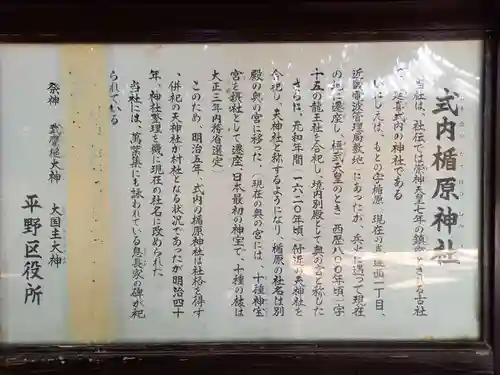 式内楯原神社
当社は、社伝では崇神天皇七年の鎮祭ときる古社
で、延喜式内の神社である
いにしえは、もとの字楯原(現在の喜連西一丁目、
近畿電波管理局敷地)にあったが、兵火に遇って現在
の地に遷座し、桓武天皇のとき(西暦八〇〇年頃)字
十五の龍王社を合祀し、境内別殿として奥の宮と称した
さらに、元和年間(一六二〇年頃)付近の天神社を
合祀し、天神社と称するようになり、楯原の社名は別
殿の奥の宮に移った、(現在の奥の宮には、十種神宝
宮を摂社として遷座(日本最初の神宝で、十種の祓は
大正三年内務省選定)
このため、明治五年、式内の楯原神社は社格を得す
、併祀の天神社が村社となる状況であったが明治四十
年、神社整理を機に現在の社名に改められた
当社には、萬葉集にも詠われている息長家の碑が祀
られている
祭神 武甕槌大神 大国主大神
平野区役所